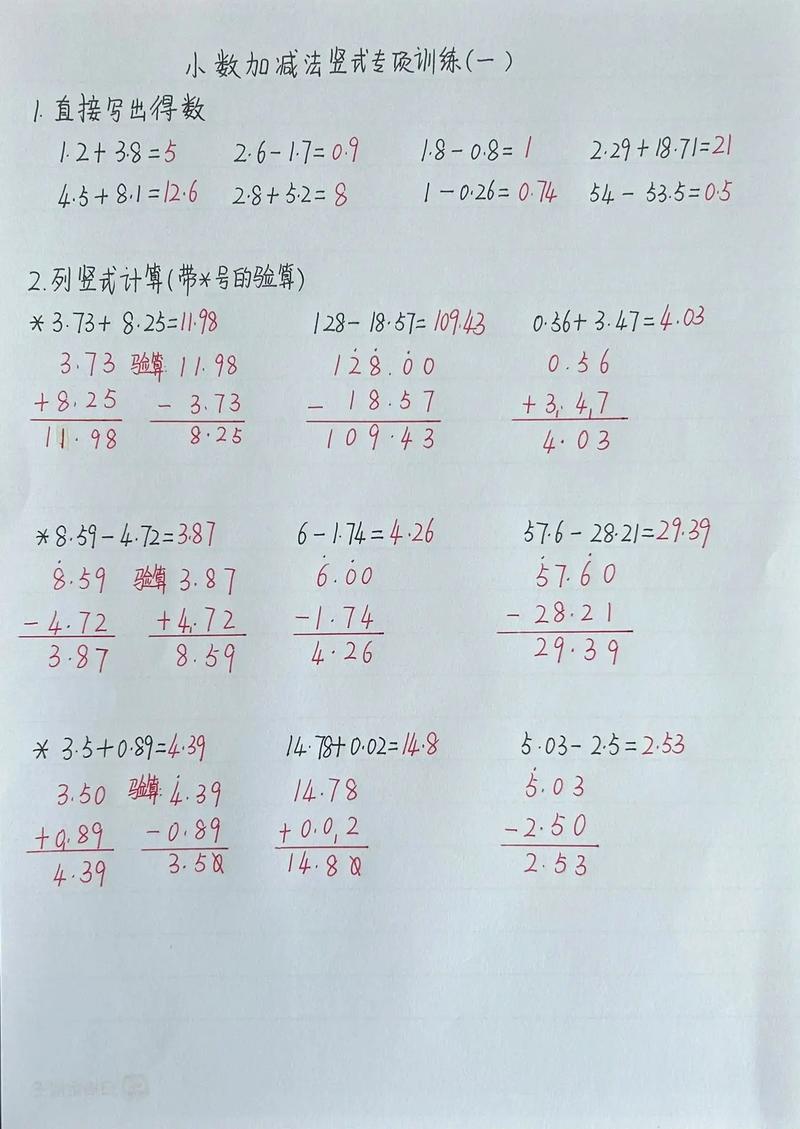 小数加减法竖式专项训练(一)
1. 直接写出得数
1.2+3.8=5 2.6-1.7=0.9 1.8-0.8=1 2.29+18.71=21
4.5+8.1=12.6 2.8+5.2=8 1-0.26=0.74 54-53.5=0.5
2.列竖式计算(带*号的验算)
*3.73+8.25=11.98 128-18.57=109.43 0.56+3.47=4.03
3.73 验算: 11.98 128.00 0.56
+8.25 -3.73 -18.57 +3.47
11.98 8.25 109.43 4.03
*8.59-4.72=3.87 6-1.74=4.26 57.6-28.21=29.39
8.59 验算: 3.87 6.00 57.60
-4.72 +4.72 -1.74 -28.21
3.87 8.59 4.26 29.39
* 3.5+0.89=4.39 14.78+0.02=14.8 5.03-2.5=2.53
3.50 验算: 4.39 14.78 5.03
+0.89 -0.89 +0.02 -2.50
4.39 3.50 14.80 2.53